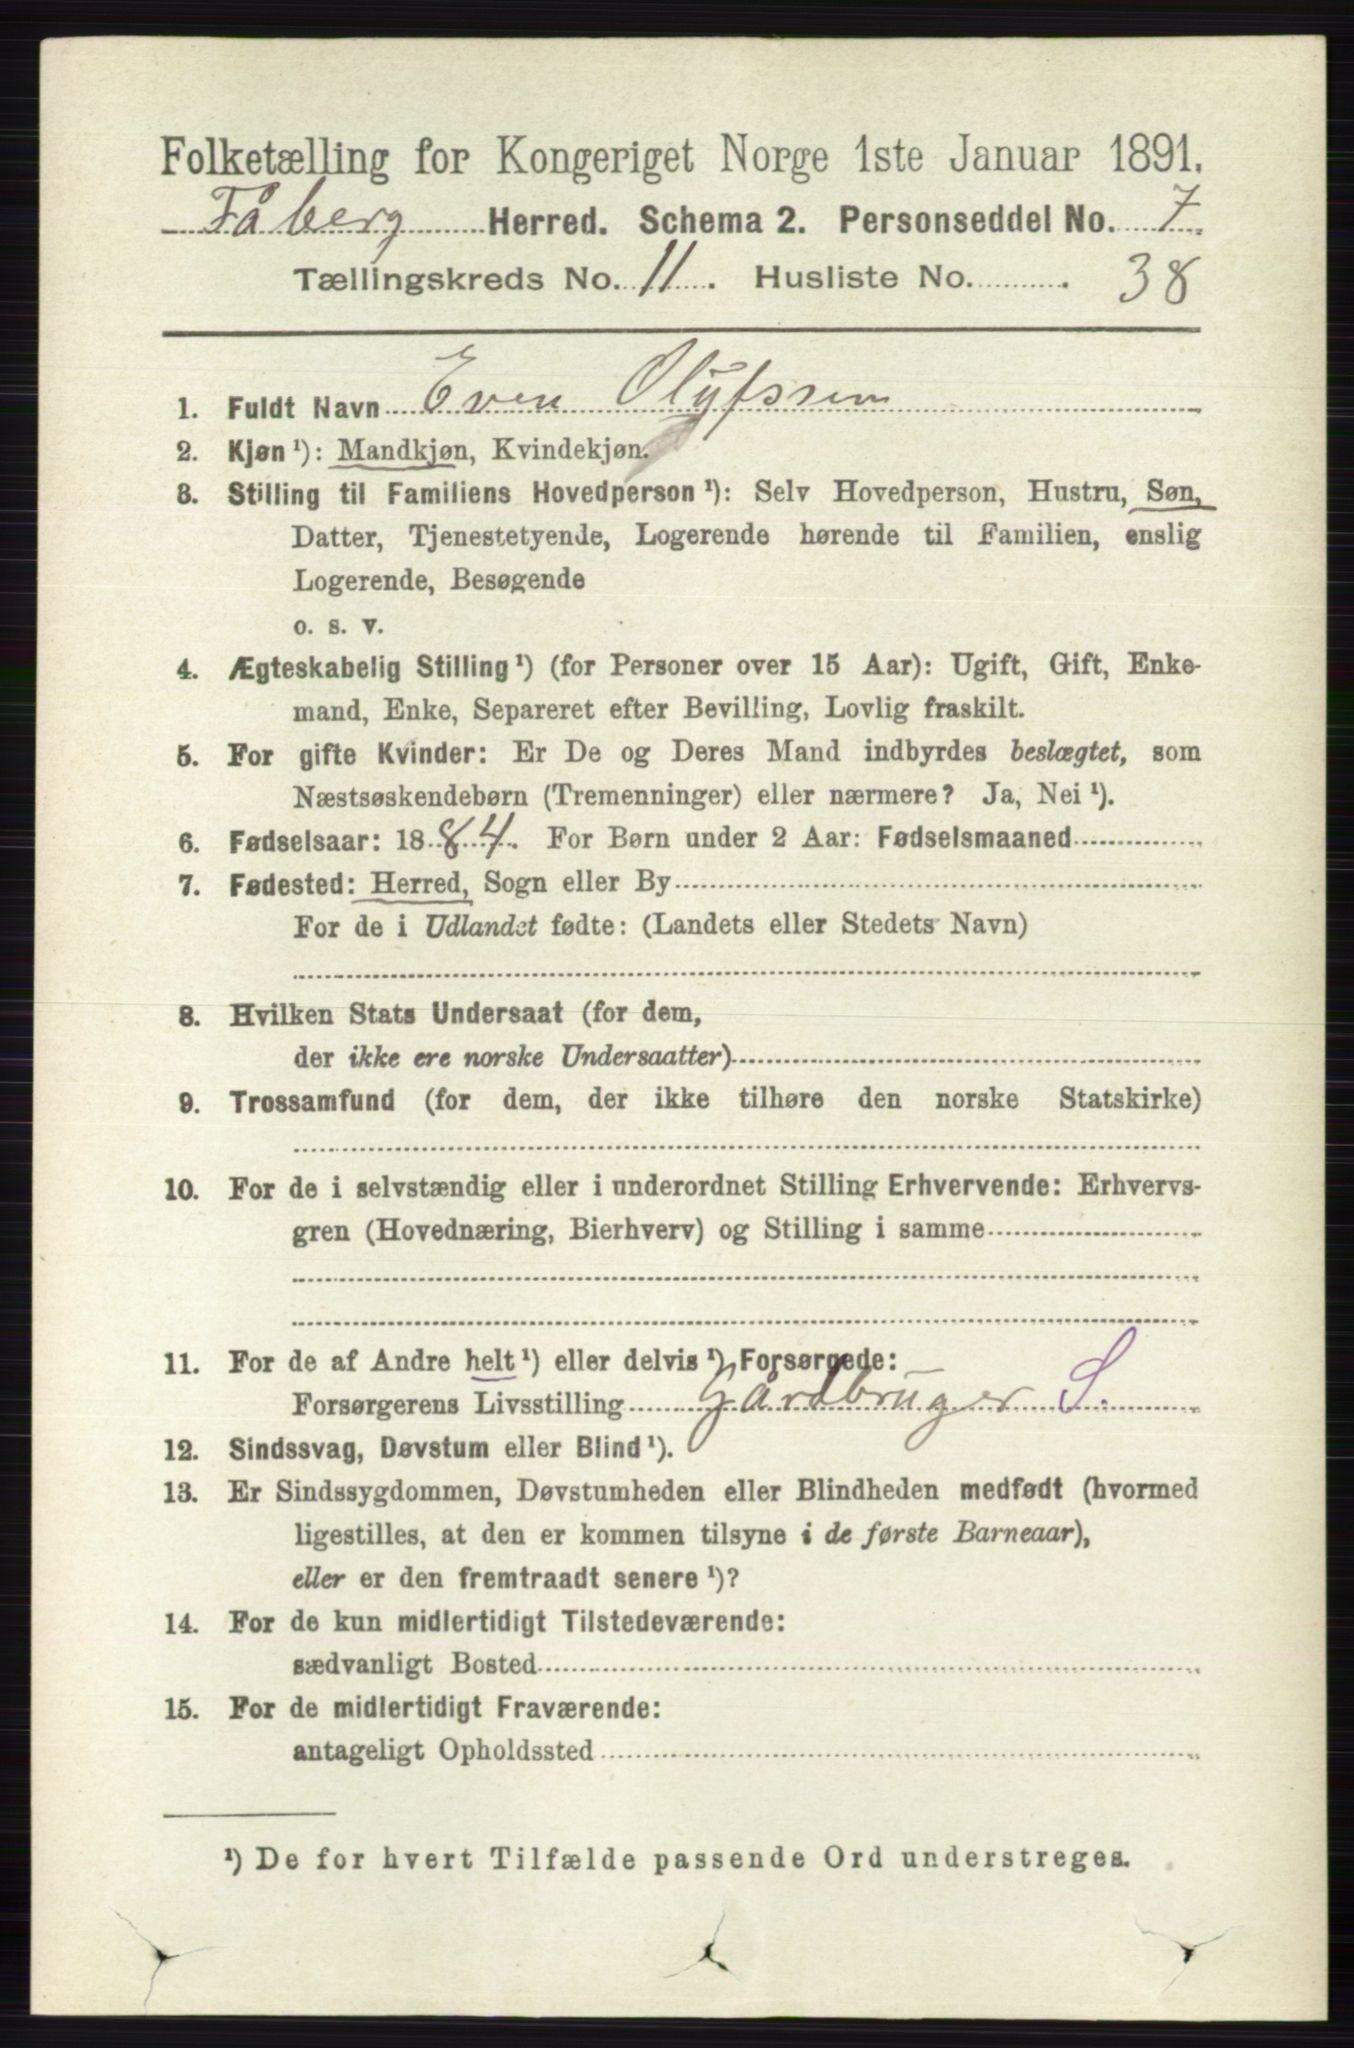 Folketælling for Kongeriget Norge 1ste Januar 1891.
Fåberg Herred. Schema 2. Personseddel No. 7
Tællingskreds No. 11. Husliste No. 38
1. Fuldt Navn Even Olufssen
2. Kjøn ¹): Mandkjøn, Kvindekjøn.
3. Stilling til Familiens Hovedperson ¹): Selv Hovedperson, Hustru, Søn,
Datter, Tjenestetyende, Logerende hørende til Familien, enslig
Logerende, Besøgende
o. s. v.
4. Ægteskabelig Stilling ¹) (for Personer over 15 Aar): Ugift, Gift, Enke-
mand, Enke, Separeret efter Bevilling, Lovlig fraskilt.
5. For gifte Kvinder: Er De og Deres Mand indbyrdes beslægtet, som
Næstsøskendebørn (Tremenninger) eller nærmere? Ja, Nei ¹).
6. Fødselsaar: 1884. For Børn under 2 Aar: Fødselsmaaned
7. Fødested: Herred, Sogn eller By
For de i Udlandet fødte: (Landets eller Stedets Navn)
8. Hvilken Stats Undersaat (for dem,
der ikke ere norske Undersaatter)
9. Trossamfund (for dem, der ikke tilhøre den norske Statskirke)
10. For de i selvstændig eller i underordnet Stilling Erhvervende: Erhvervs-
gren (Hovednæring, Bierhverv) og Stilling i samme
11. For de af Andre helt ¹) eller delvis ¹) Forsørgede:
Forsørgerens Livsstilling Gårdbruger S.
12. Sindssvag, Døvstum eller Blind ¹).
13. Er Sindssygdommen, Døvstumheden eller Blindheden medfødt (hvormed
ligestilles, at den er kommen tilsyne i de første Barneaar),
eller er den fremtraadt senere ¹)?
14. For de kun midlertidigt Tilstedeværende:
sædvanligt Bosted
15. For de midlertidigt Fraværende:
antageligt Opholdssted
¹) De for hvert Tilfælde passende Ord understreges.